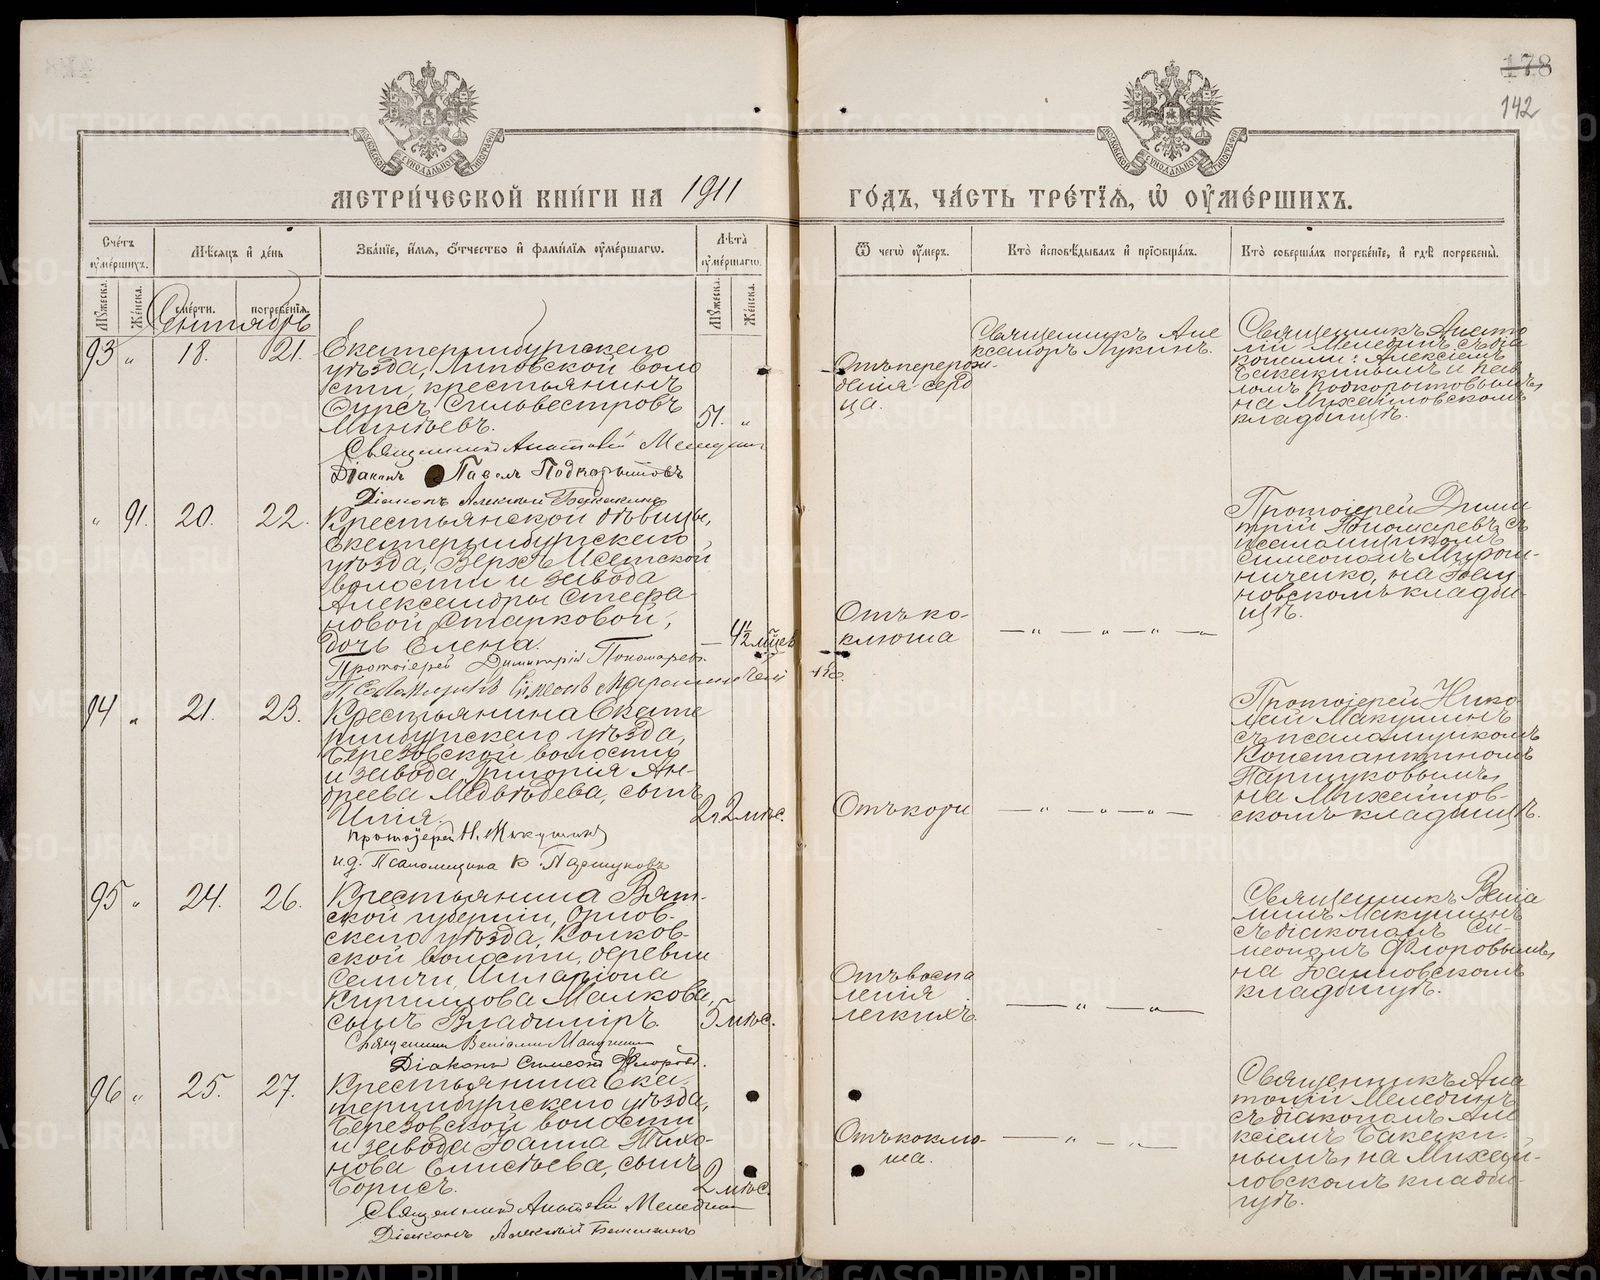 178
142
МЕТРИЧЕСКОЙ КНИГИ НА 1911
ГОДЪ, ЧАСТЬ ТРЕТІЯ, Ѡ ОУМЕРШИХЪ.
Счетъ оумершихъ.
Мѣсяцъ и день
Званіе, имя, отчество и фамилія оумершагѡ.
Лѣта оумершагѡ.
Мужеска.
Женска.
смерти.
погребенія.
Мужеска.
Женска.
Ѿ чегѡ оумеръ.
Кто исповѣдывалъ и пріобщалъ.
Кто совершалъ погребеніе, и гдѣ погребены.
Сентябрь
93 „ 18. 21.
Екатеринбургскаго
уѣзда, Липовской воло
сти, крестьянинъ
Фирсъ Сильвестровъ
Минѣевъ. 51. „
Священникъ Анатолій Меледин
Діаконъ Павелъ Подкорытовъ
Діаконъ Алексій Бакакинъ
Отъ перерож-
денія серд
ца.
Священникъ Але
ксандръ Лукинъ.
Священникъ Анато
лій Мелединъ съ діа
конами: Алексіемъ
Бакакинымъ и Пав
ломъ Подкорытовымъ,
на Михайловскомъ
кладбищѣ.
„ 91. 20. 22.
Крестьянской дѣвицы,
Екатеринбургскаго
уѣзда, Верхъ Исетской
волости и завода
Александры Стефа
новой Старковой,
дочь Елена. — 4½ мѣсяц
Протоіерей Димитрій Пономаревъ.
Псаломщикъ Симеонъ Мирошниченко
Отъ ко-
клюша
— „ — „ — „ —
Протоіерей Дими
трій Пономаревъ съ
псаломщикомъ
Симеономъ Мирош-
ниченко, на Іоан
новскомъ кладби-
щѣ.
94 „ 21. 23.
Крестьянина Екате
ринбургскаго уѣзда,
Березовской волости
и завода Григорія Ан-
дреева Медвѣдева, сынъ
Илія. 2 г. 2 мѣс.
протоіерей Н. Макушинъ
и.д. Псаломщика К. Паршуковъ
Отъ кори
— „ — „ —
Протоіерей Нико
лай Макушинъ
съ псаломщикомъ
Константиномъ
Паршуковымъ,
на Михайлов-
скомъ кладбищѣ.
95 „ 24. 26.
Крестьянина Вят-
ской губерніи, Орлов-
скаго уѣзда, Колков-
ской волости, деревни
Селичи, Илларіона
Кириллова Малкова,
сынъ Владиміръ. 5 мѣс.
Священникъ Веніаминъ Макушинъ
Діаконъ Симеонъ Флоровъ.
Отъ воспа
ленія
легкихъ.
— „ — „ —
Священникъ Веніа
минъ Макушинъ
съ діакономъ Си-
меономъ Флоровымъ,
на Іоанновскомъ
кладбищѣ.
96 „ 25. 27.
Крестьянина Ека-
теринбургскаго уѣзда,
Березовской волости
и завода Іоанна Тихо-
нова Елисѣева, сынъ
Борисъ. 2 мѣс.
Священникъ Анатолій Меледин
Діаконъ Алексій Бакакинъ
Отъ коклю-
ша.
— „ — „ —
Священникъ Ана
толій Мелединъ
съ діакономъ Але
ксіемъ Бакаки-
нымъ, на Михай-
ловскомъ кладби-
щѣ.
METRIKI.GASO-URAL.RU